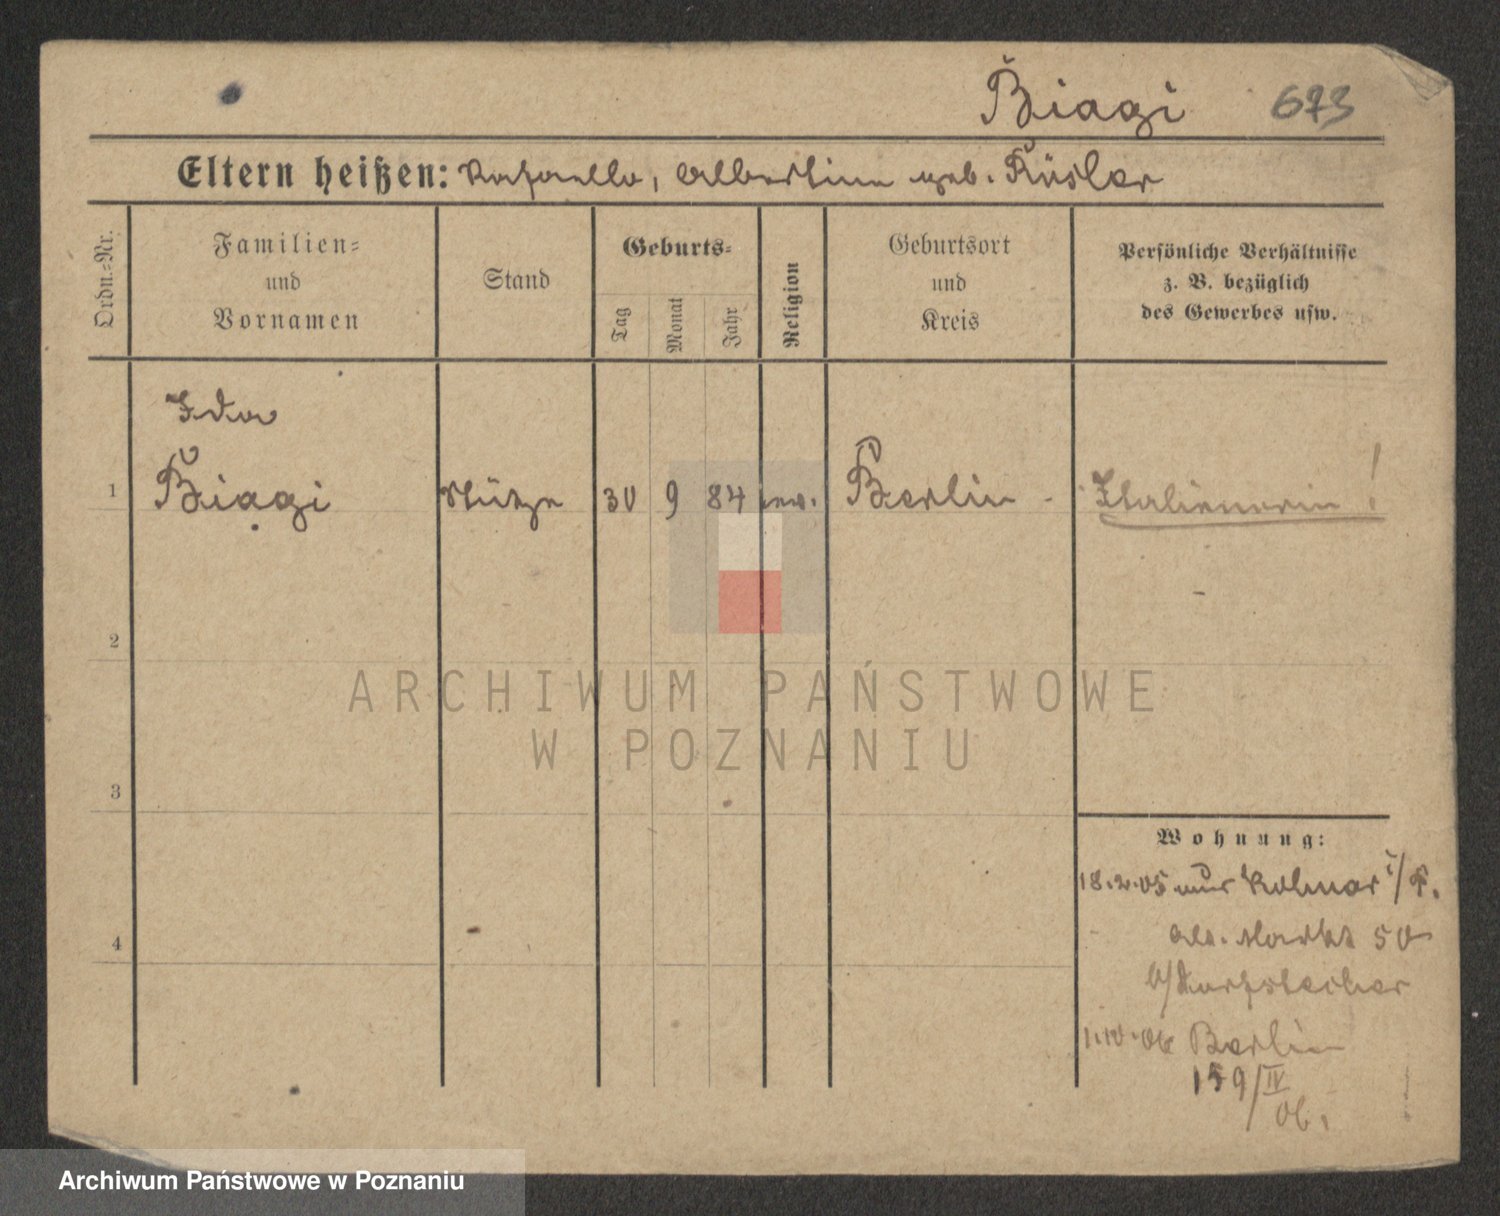 Biagi 673
Eltern heißen: Rafaello, Albertine geb. Küsler
Ordn.-Nr.
Familien-
und
Vornamen
Stand
Geburts-
Tag
Monat
Jahr
Religion
Geburtsort
und
Kreis
Persönliche Verhältnisse
z. B. bezüglich
des Gewerbes usw.
Ida
1 Biagi Stütze 30 9 84 ev. Berlin - Italienerin!
2
ARCHIWUM PAŃSTWOWE
W POZNANIU
3
Wohnung:
18.2.05 aus Kolmar i/P.
Alt. Markt 50
4
1.10.06 Berlin
159/IV
06.
Archiwum Państwowe w Poznaniu